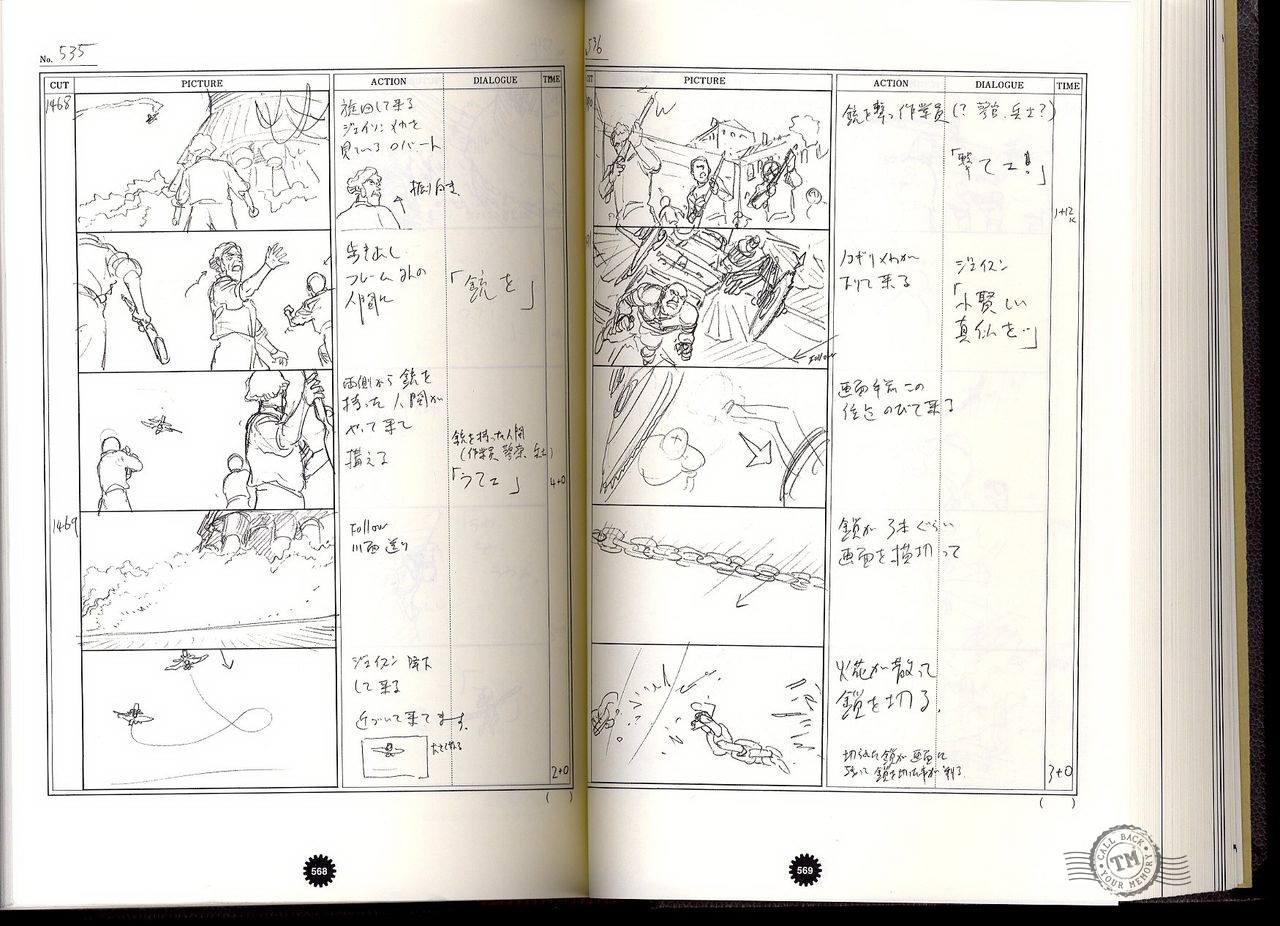 No. 535
CUT PICTURE ACTION DIALOGUE TIME
1468
旋回して来る
ジェイソンメカを
見ているロバート
振り向き
歩き出し
フレーム外の
人間に
「銃を」
両側から銃を
持った人間が
やって来て
構える
銃を持った人間
(作業員 警察 兵士)
「うてェ」
4+0
1469
Follow
川面送り
ジェイソン 降下
して来る
近づいて来てます。
2+0
( )
568
536
CUT PICTURE ACTION DIALOGUE TIME
銃を撃つ作業員(? 警官、兵士?)
「撃てェ!」
1+12
ノコギリメカが
おりて来る
ジェイソン
「小賢しい
真似を…」
Follow
画面手前この
位までのびて来る
鎖が3本ぐらい
画面を横切って
火花が散って
鎖を切る。
切られた鎖が画面に
3+0
( )
569
CALL BACK
TM
YOUR MEMORY